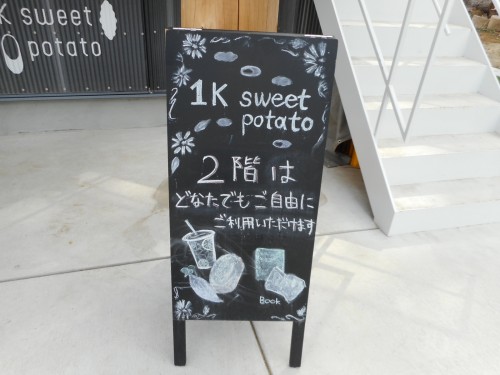 K sweet
potato
1K sweet
potato
2階は
どなたでもご自由に
ご利用いただけます
Book